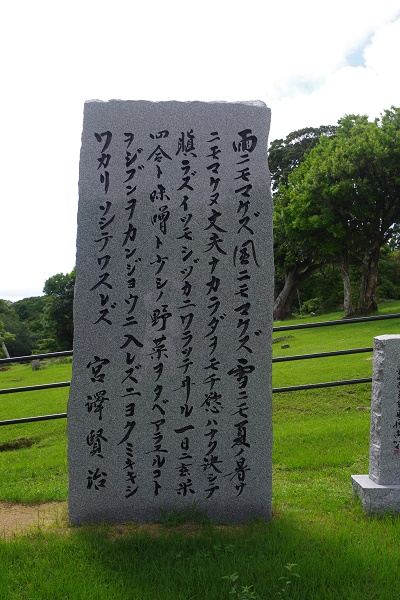 雨ニモマケズ風ニモマケズ雪ニモ夏ノ暑サ
ニモマケヌ丈夫ナカラダヲモチ慾ハナク決シテ
瞋ラズイツモシヅカニワラッテヰル一日ニ玄米
四合ト味噌ト少シノ野菜ヲタベアラユルコト
ヲジブンヲカンジョウニ入レズニヨクミキキシ
ワカリソシテワスレズ 宮澤賢治